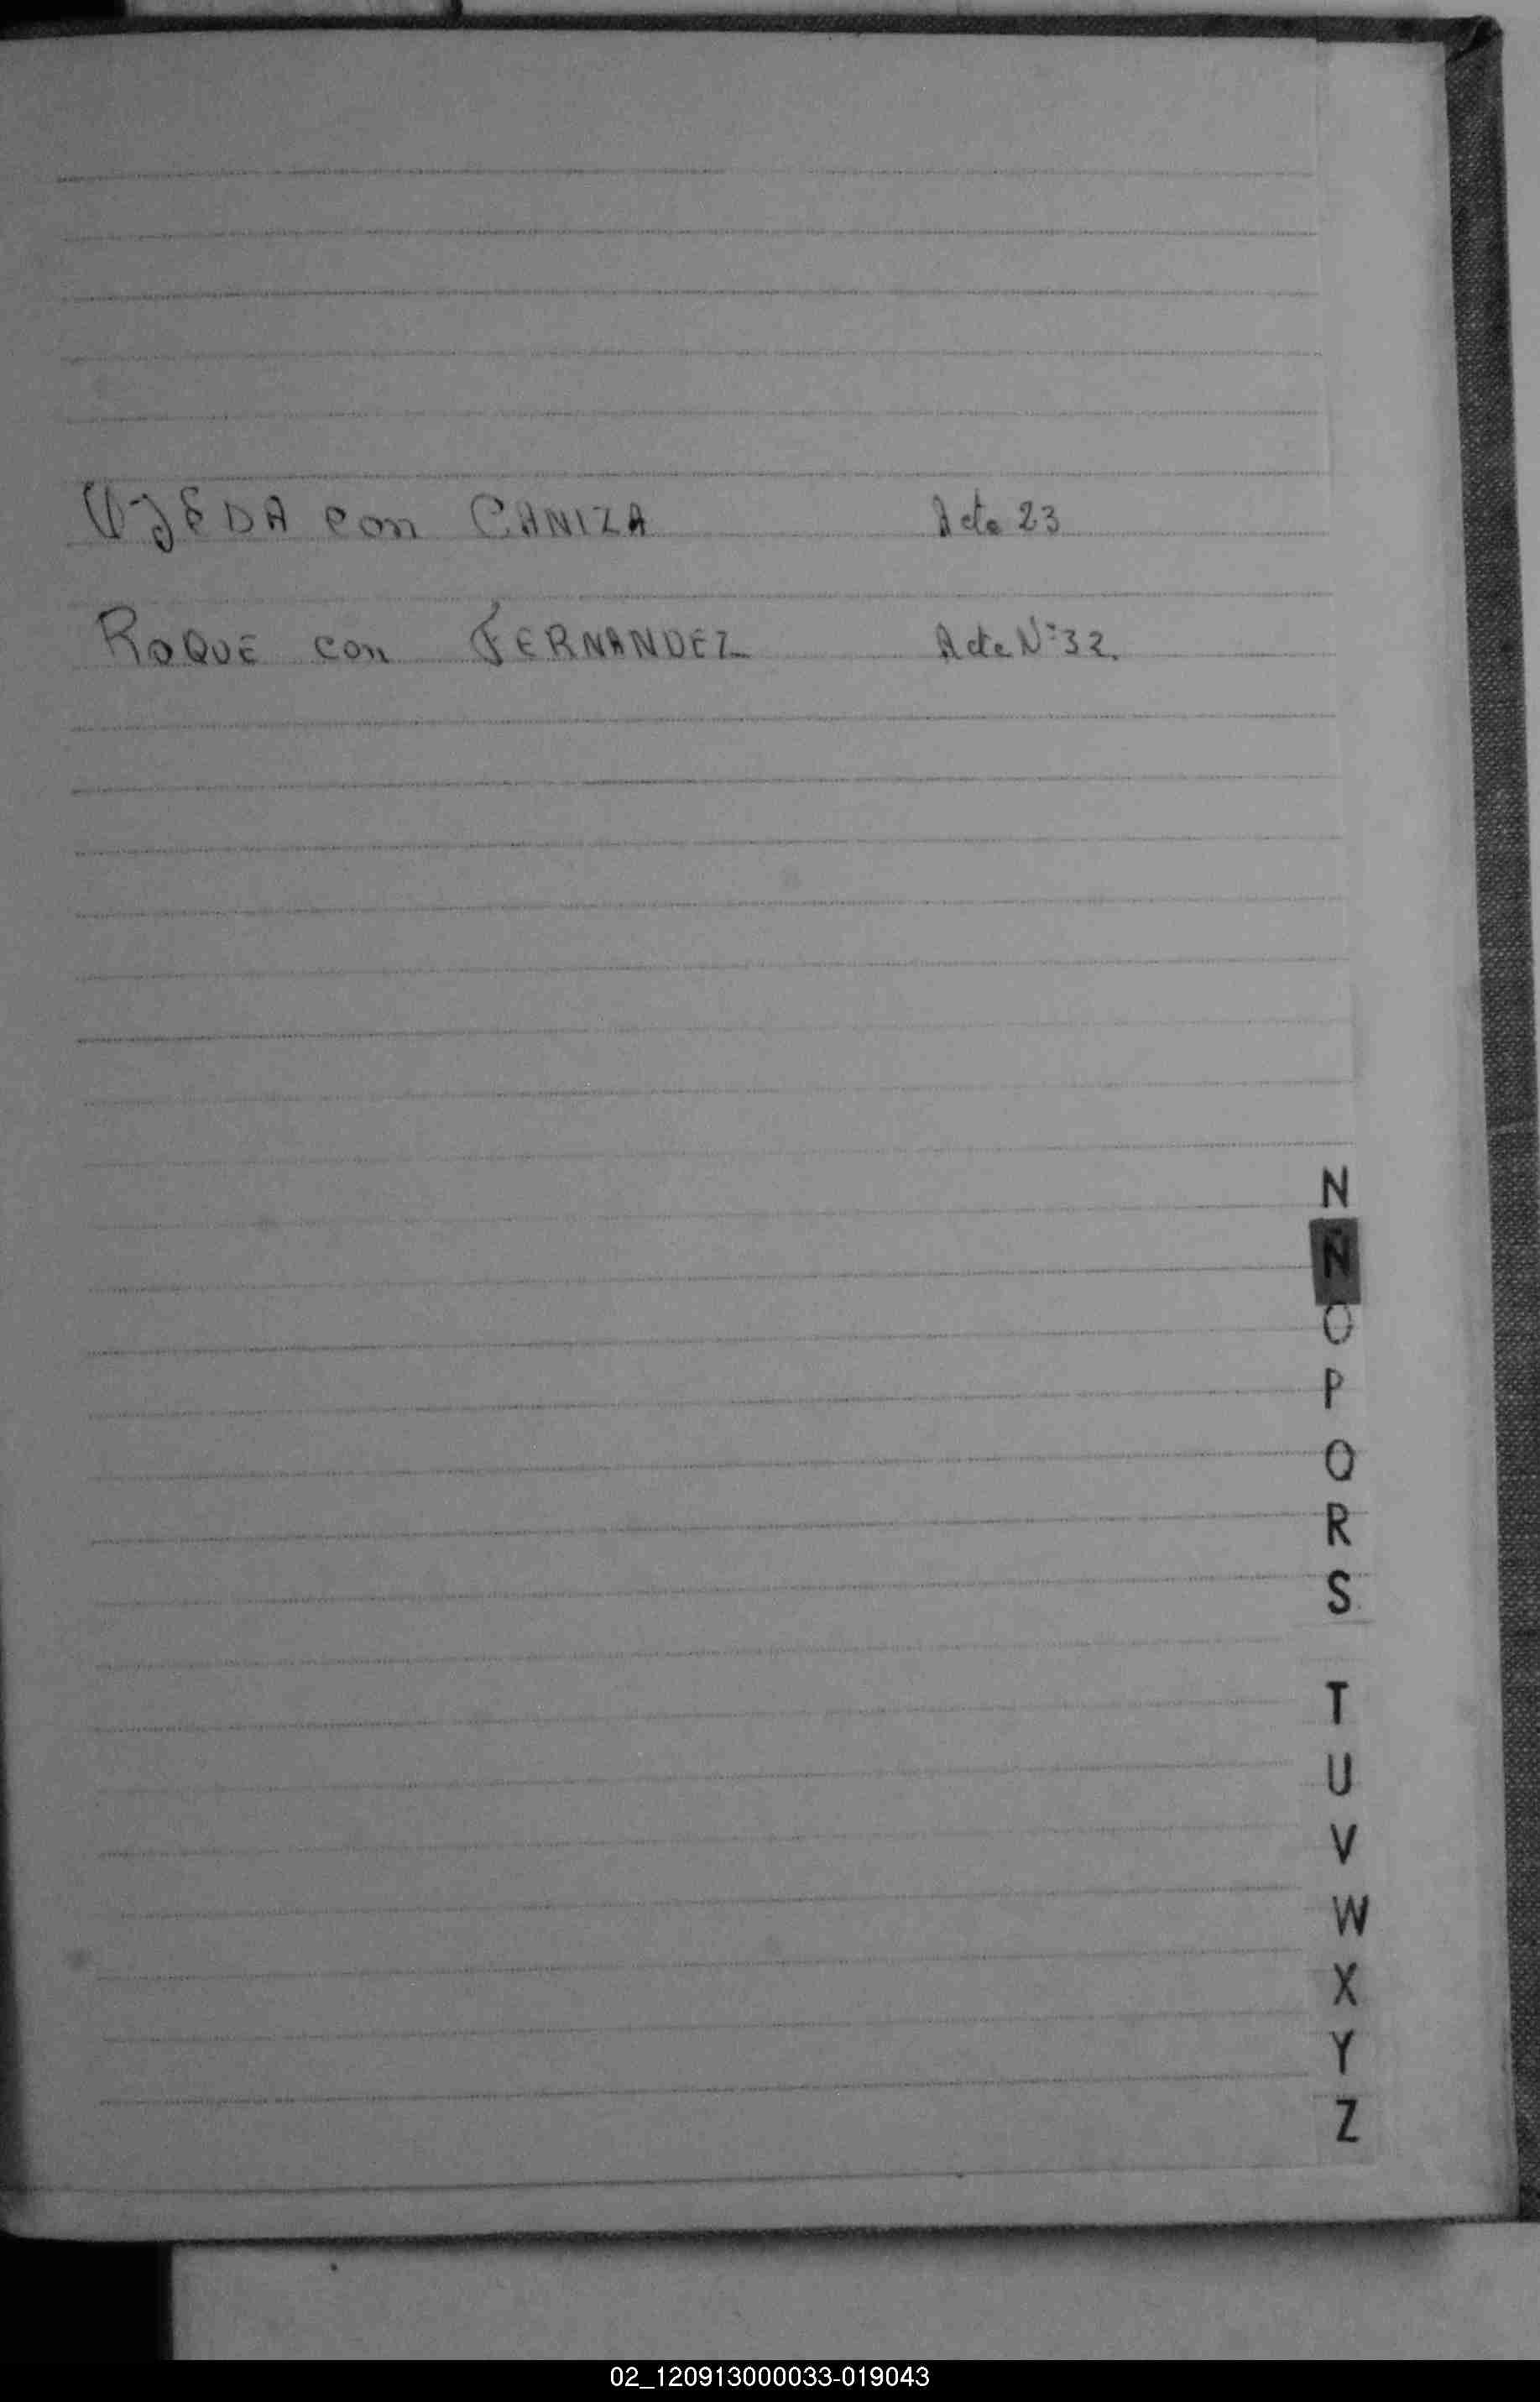 OJEDA con CANIZA Acta 23
ROQUE con FERNANDEZ Acta Nº 32.
N
Ñ
O
P
Q
R
S
T
U
V
W
X
Y
Z
02_120913000033-019043